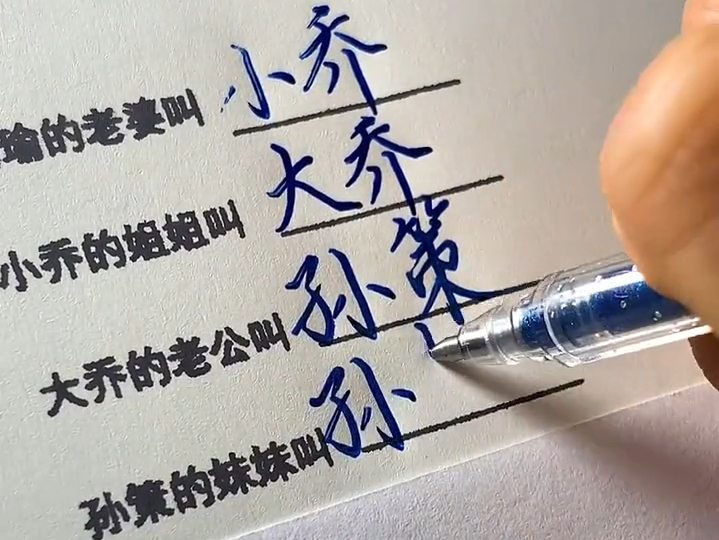 瑜的老婆叫小乔
小乔的姐姐叫大乔
大乔的老公叫孙策
孙策的妹妹叫孙